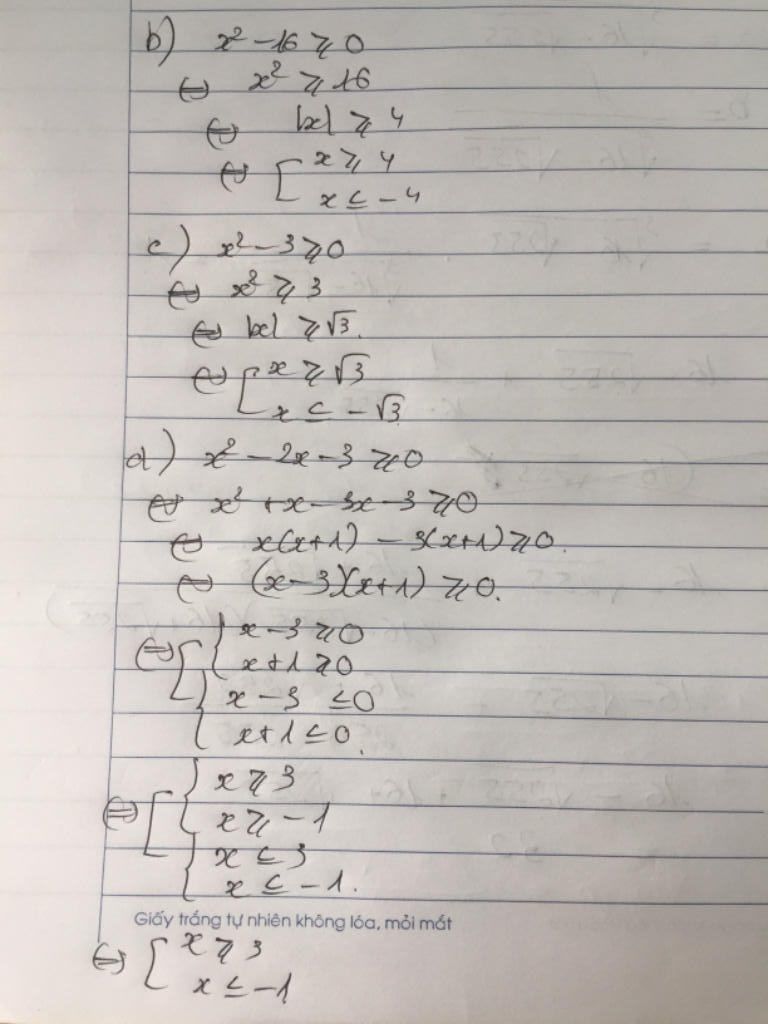 b) x² - 16 ≥ 0
⇔ x² ≥ 16
⇔ |x| ≥ 4
⇔ [ x ≥ 4
x ≤ -4
c) x² - 3 ≥ 0
⇔ x² ≥ 3
⇔ |x| ≥ √3.
⇔ [ x ≥ √3
x ≤ -√3
d) x² - 2x - 3 ≥ 0
⇔ x² + x - 3x - 3 ≥ 0
⇔ x(x+1) - 3(x+1) ≥ 0.
⇔ (x-3)(x+1) ≥ 0.
⇔ [ { x - 3 ≥ 0
x + 1 ≥ 0
{ x - 3 ≤ 0
x + 1 ≤ 0.
⇔ [ { x ≥ 3
x ≥ -1
{ x ≤ 3
x ≤ -1.
Giấy trắng tự nhiên không lóa, mỏi mắt
⇔ [ x ≥ 3
x ≤ -1